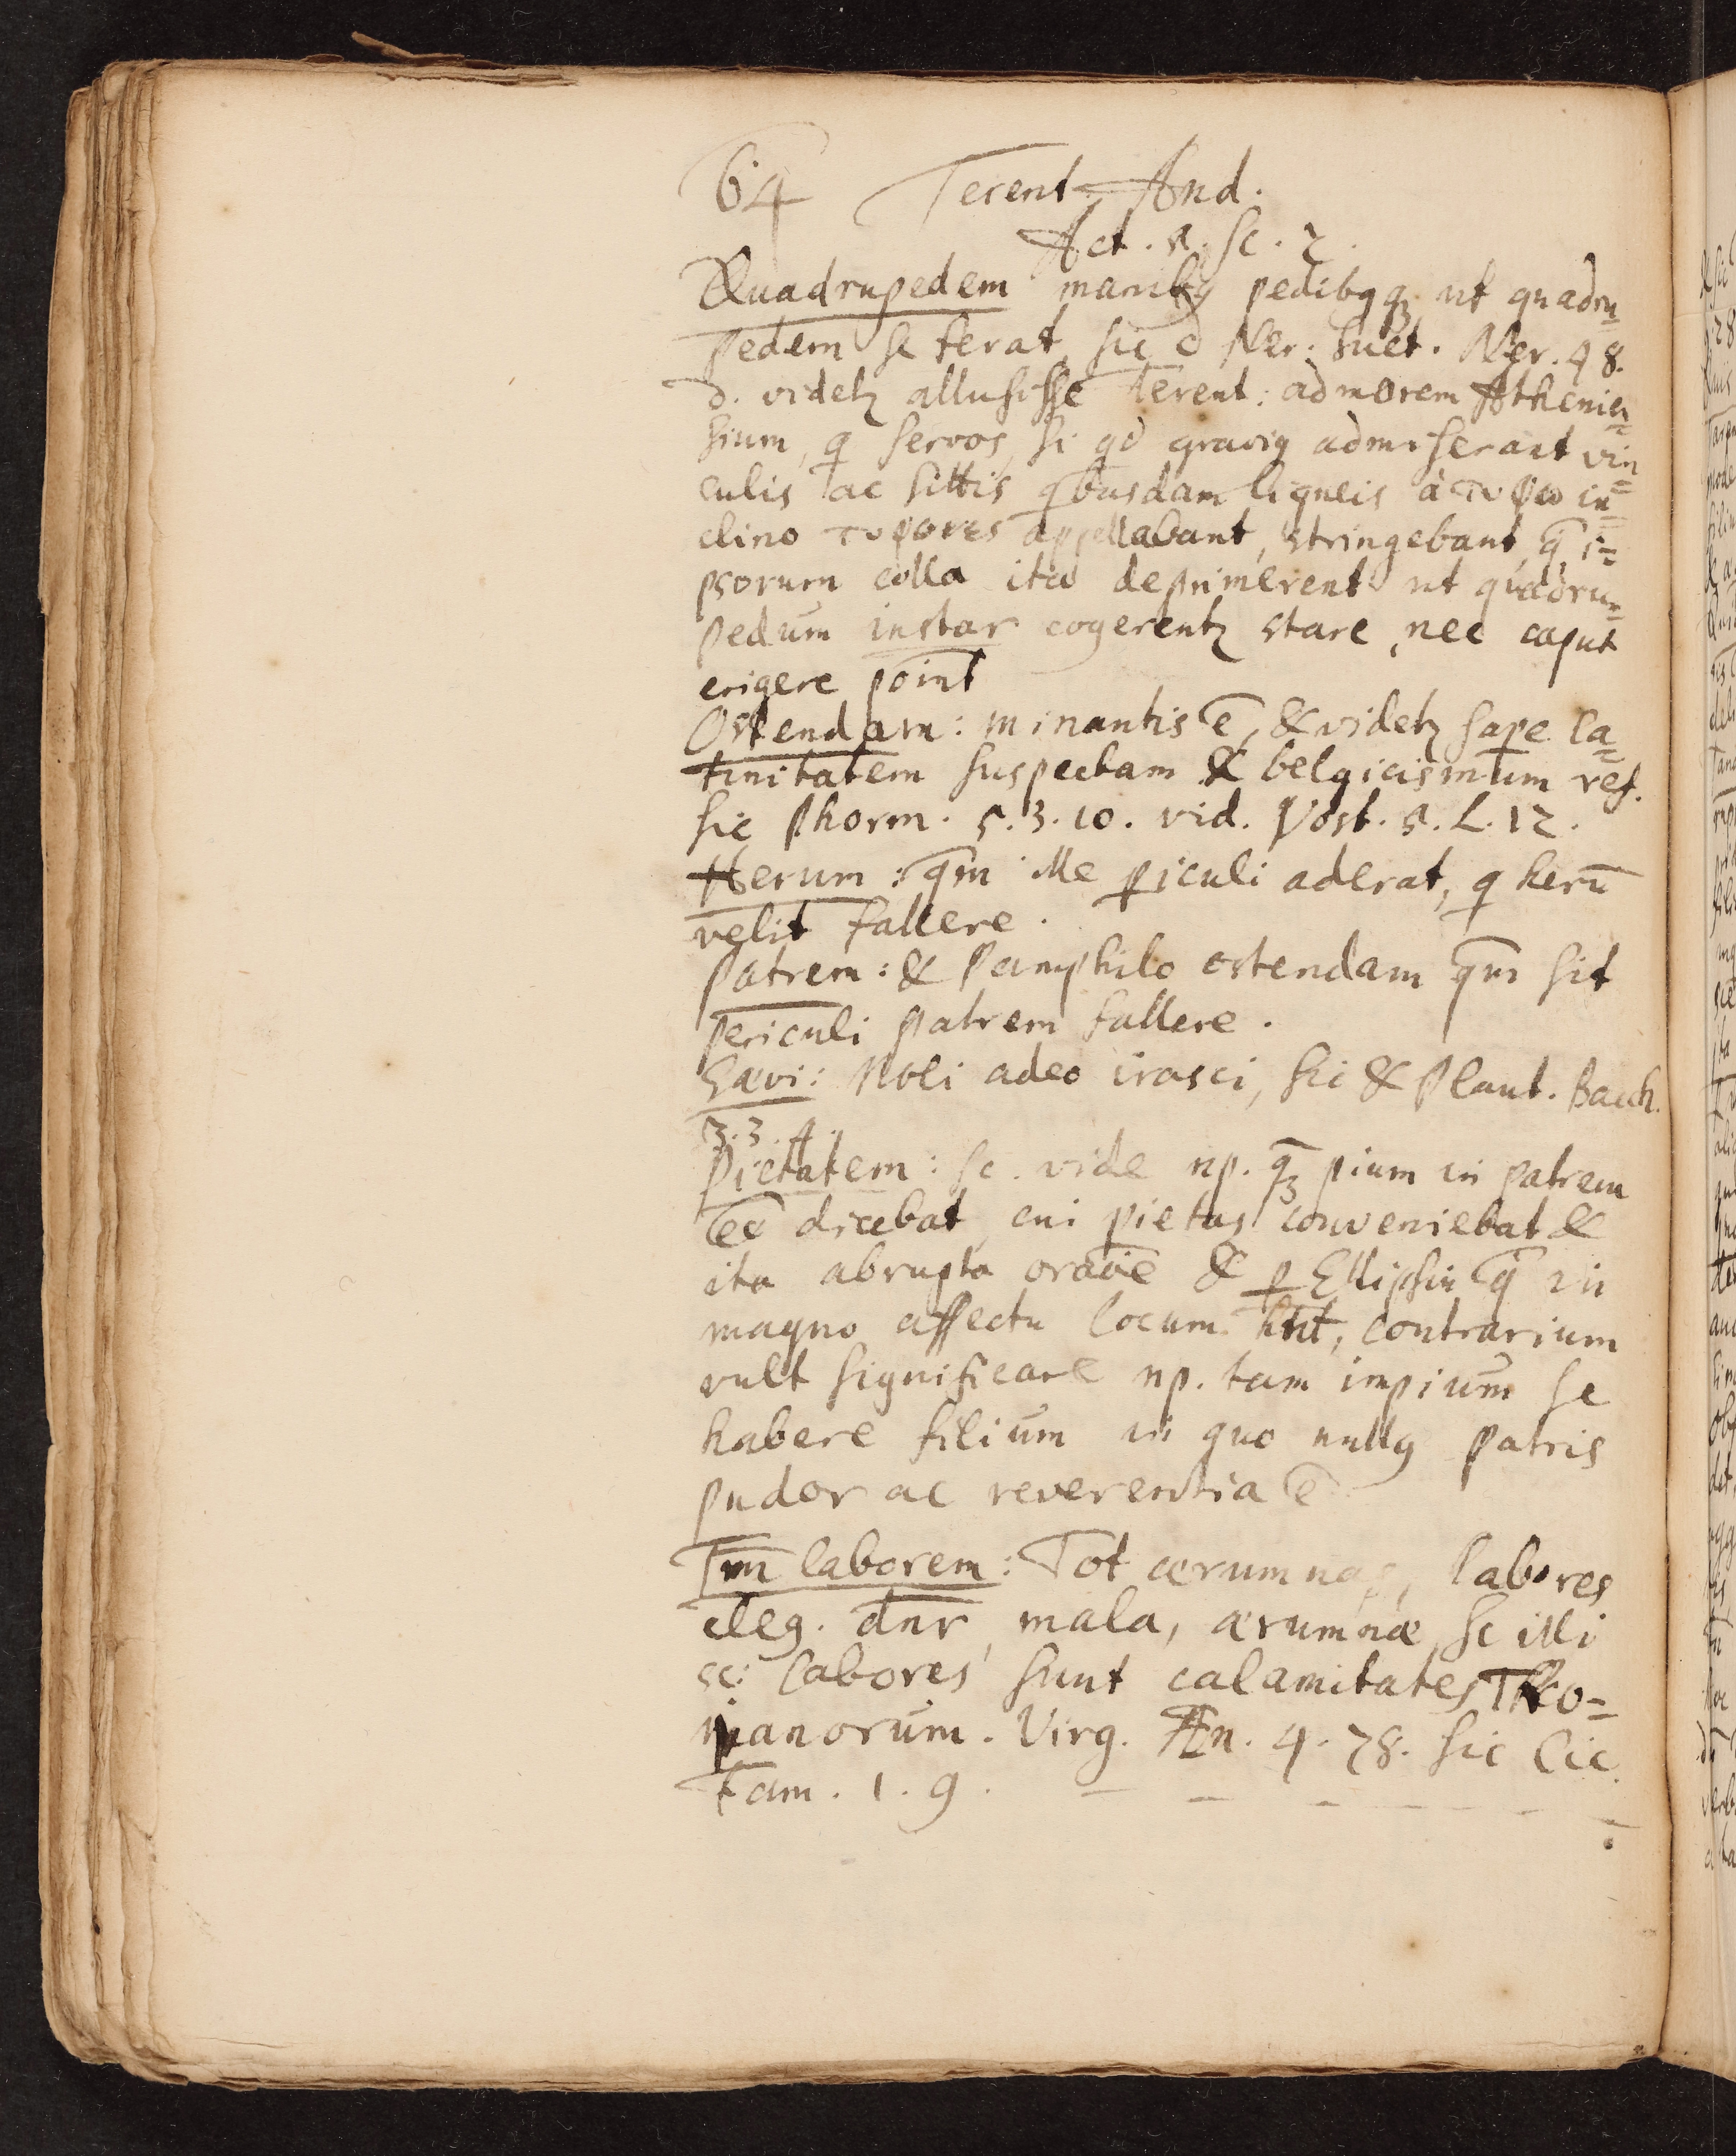 64 Terent. And.
Act. 5. Sc. 2.
Quadrupedem manibꝯ pedibꝯqꝫ ut quadru=
pedem se ferat, sic d Ner. Suet. Ner. 48.
d. videtꝫ allusisse Terent: ad morem Athenien=
sium, q servos, si qd graviꝯ admiserant vin=
culis ac sittis qbusdam ligneis à τυφω in=
clino τυφοres appellabant, stringebant, q̄ i=
psorum colla ita deprimerent ut quadru=
pedum instar cogerentꝫ stare, nec caput
erigere point
Ostendam: minantis ē, & videtꝫ sape la=
tinitatem suspectam & belgicismum ref.
sic Phorm. 5.3.10. vid. Vost. s. L. 12.
Herum: qm̄ ille ꝑiculi aderat, q herū
velit fallere.
Patrem: & Pamphilo ostendam qm̄ sit
periculi patrem fallere.
Sævi: Noli adeo irasci, sic & Plaut. Bacch.
3.3.4.
Pietatem: sc. vide np. q̄ꝫ pium in patrem
ēē dicebat, cui pietas conveniebat &
ita abrupta oraōe & ꝑ Ellipsin q̄ in
magno affectu locum hn̄t, contrarium
vult significare np. tam impium se
habere filium in quo nullꝯ patris
pudor ac reverentia ē
Tm̄ laborem: Tot ærumnas, labores
eleg. dn̄r, mala, ærumnæ, sc illi
sc: labores sunt calamitates Tro=
janorum. Virg. Æn. 4. 78. sic Cic.
Fam. 1. 9.